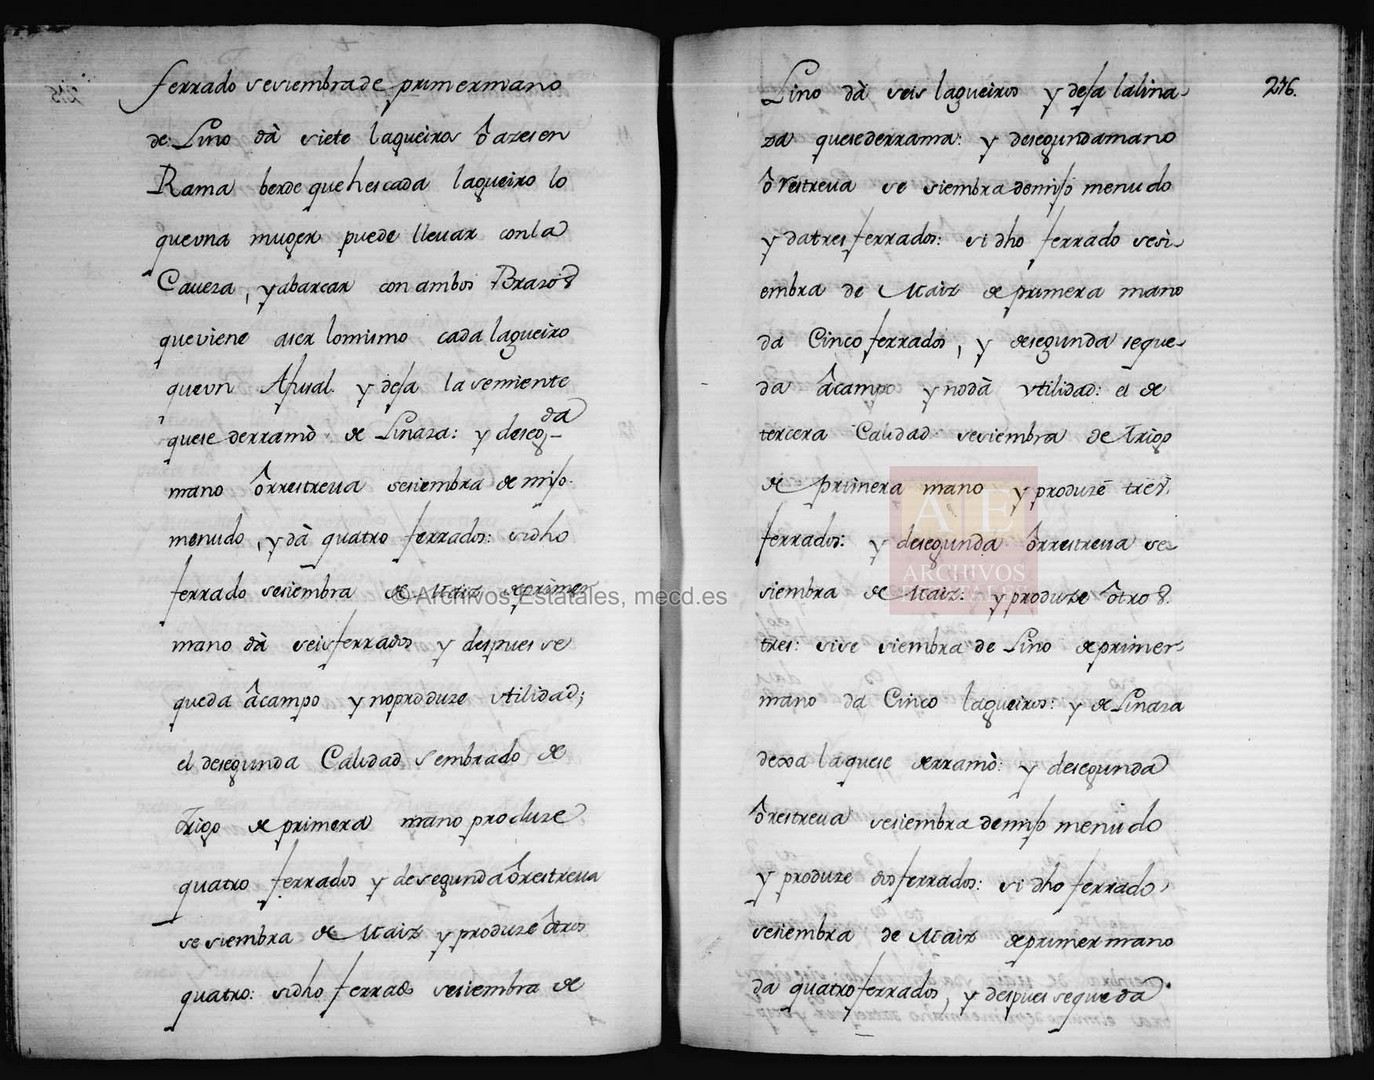 ferrado sesiembra de primer mano
de Lino dà siete lagueiros ô azes en
Rama berde que hes cada lagueiro lo
que vna muger puede lleuar con la
Caueza, y abarcar con ambos Brazos
que viene aser lo mismo cada lagueiro
que vn Afusal y desa la semiente
que se derramò de Linaza: y de seg.da
mano ô rrestreua sesiembra de mijo
menudo, y dà quatro ferrados: si dho
ferrado sesiembra de Maiz de primer
mano dà seis ferrados y despues se
queda âcampo y no produze vtilidad;
el de segunda Calidad sembrado de
Trigo de primera mano produze
quatro ferrados y de segunda ôrrestreua
se siembra de Maiz y produze ôtros
quatro: si dho ferrado sesiembra de
276.
Lino dà seis lagueiros y desa la lina-
za que se derrama: y de segunda mano
ô rrestreua se siembra de mijo menudo
y da tres ferrados: si dho ferrado sesi-
embra de Maiz de primera mano
da Cinco ferrados, y de segunda seque-
da âcampo y no dà vtilidad: el de
tercera Calidad sesiembra de Trigo
de primera mano y produze tres
ferrados: y de segunda ôrrestreua se-
siembra de Maiz: y produze ôtros
tres: si se siembra de Lino de primer
mano da Cinco lagueiros: y de Linaza
dexa la que se derramò: y de segunda
ôrestreua sesiembra de mijo menudo
y produze dos ferrados: si dho ferrado
sesiembra de Maiz de primer mano
da quatro ferrados, y despues se queda
AE
ARCHIVOS
© Archivos Estatales, mecd.es